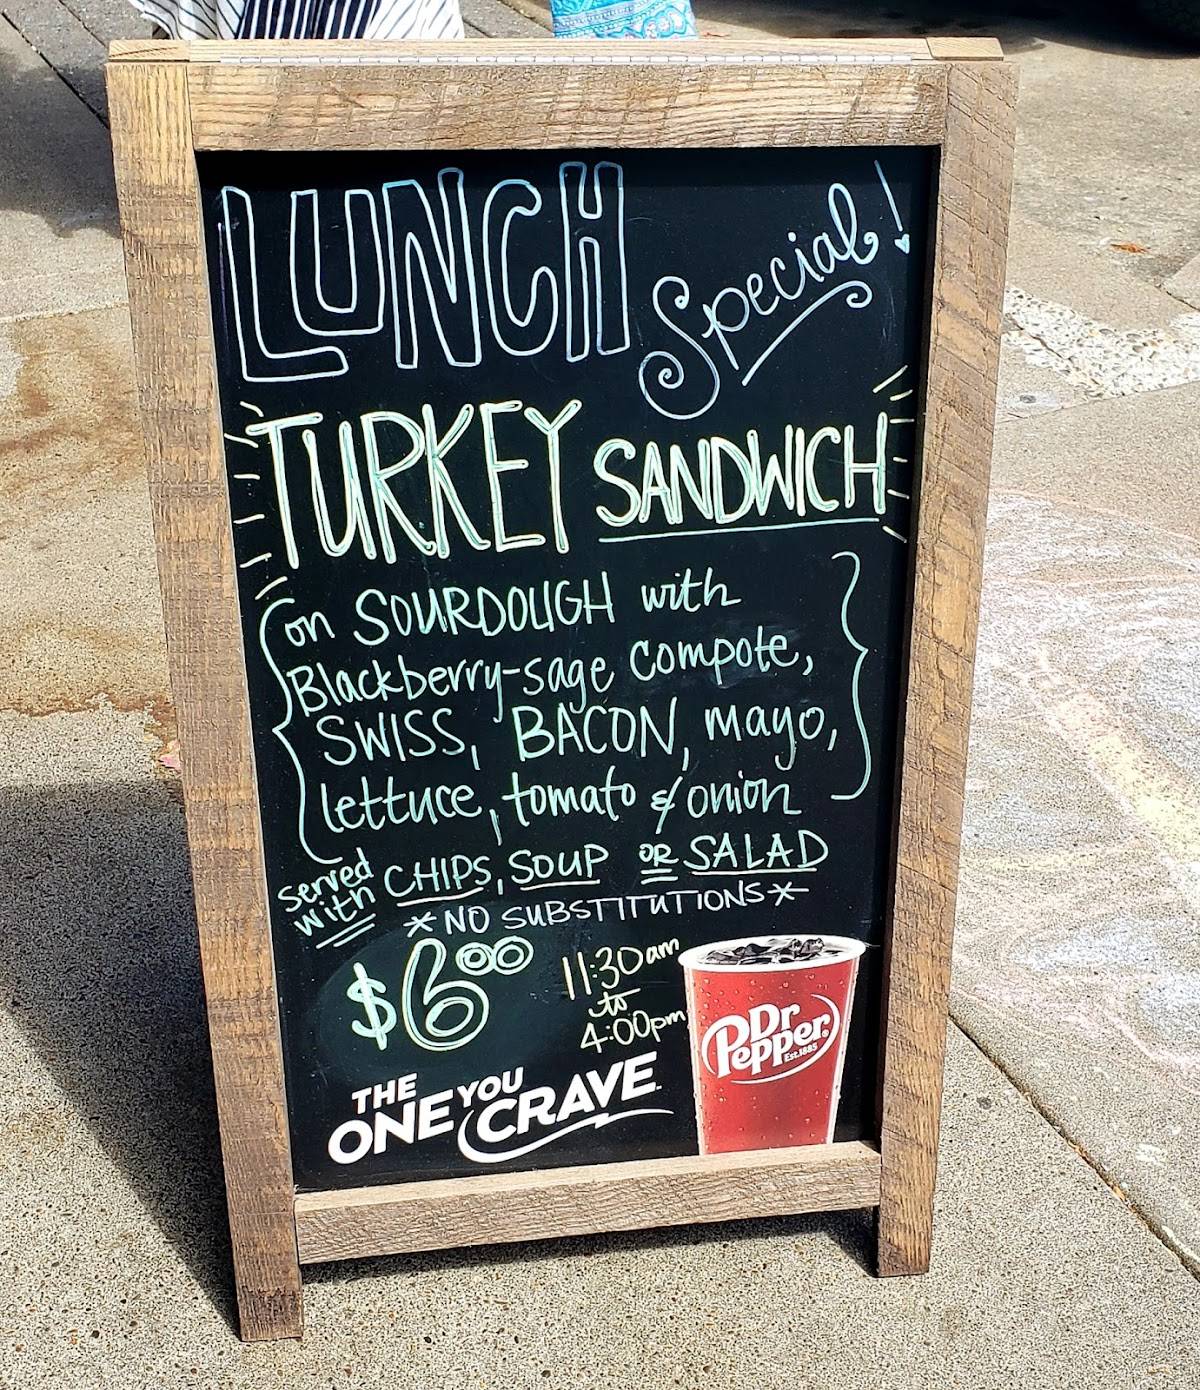 LUNCH Special!
TURKEY SANDWICH
on SOURDOUGH with
Blackberry-sage compote,
SWISS, BACON, mayo,
lettuce, tomato & onion
served with CHIPS, SOUP OR SALAD
*NO SUBSTITUTIONS*
$6.00
11:30am
to
4:00pm
THE
ONE YOU
CRAVE™
Dr
Pepper®
Est.1885